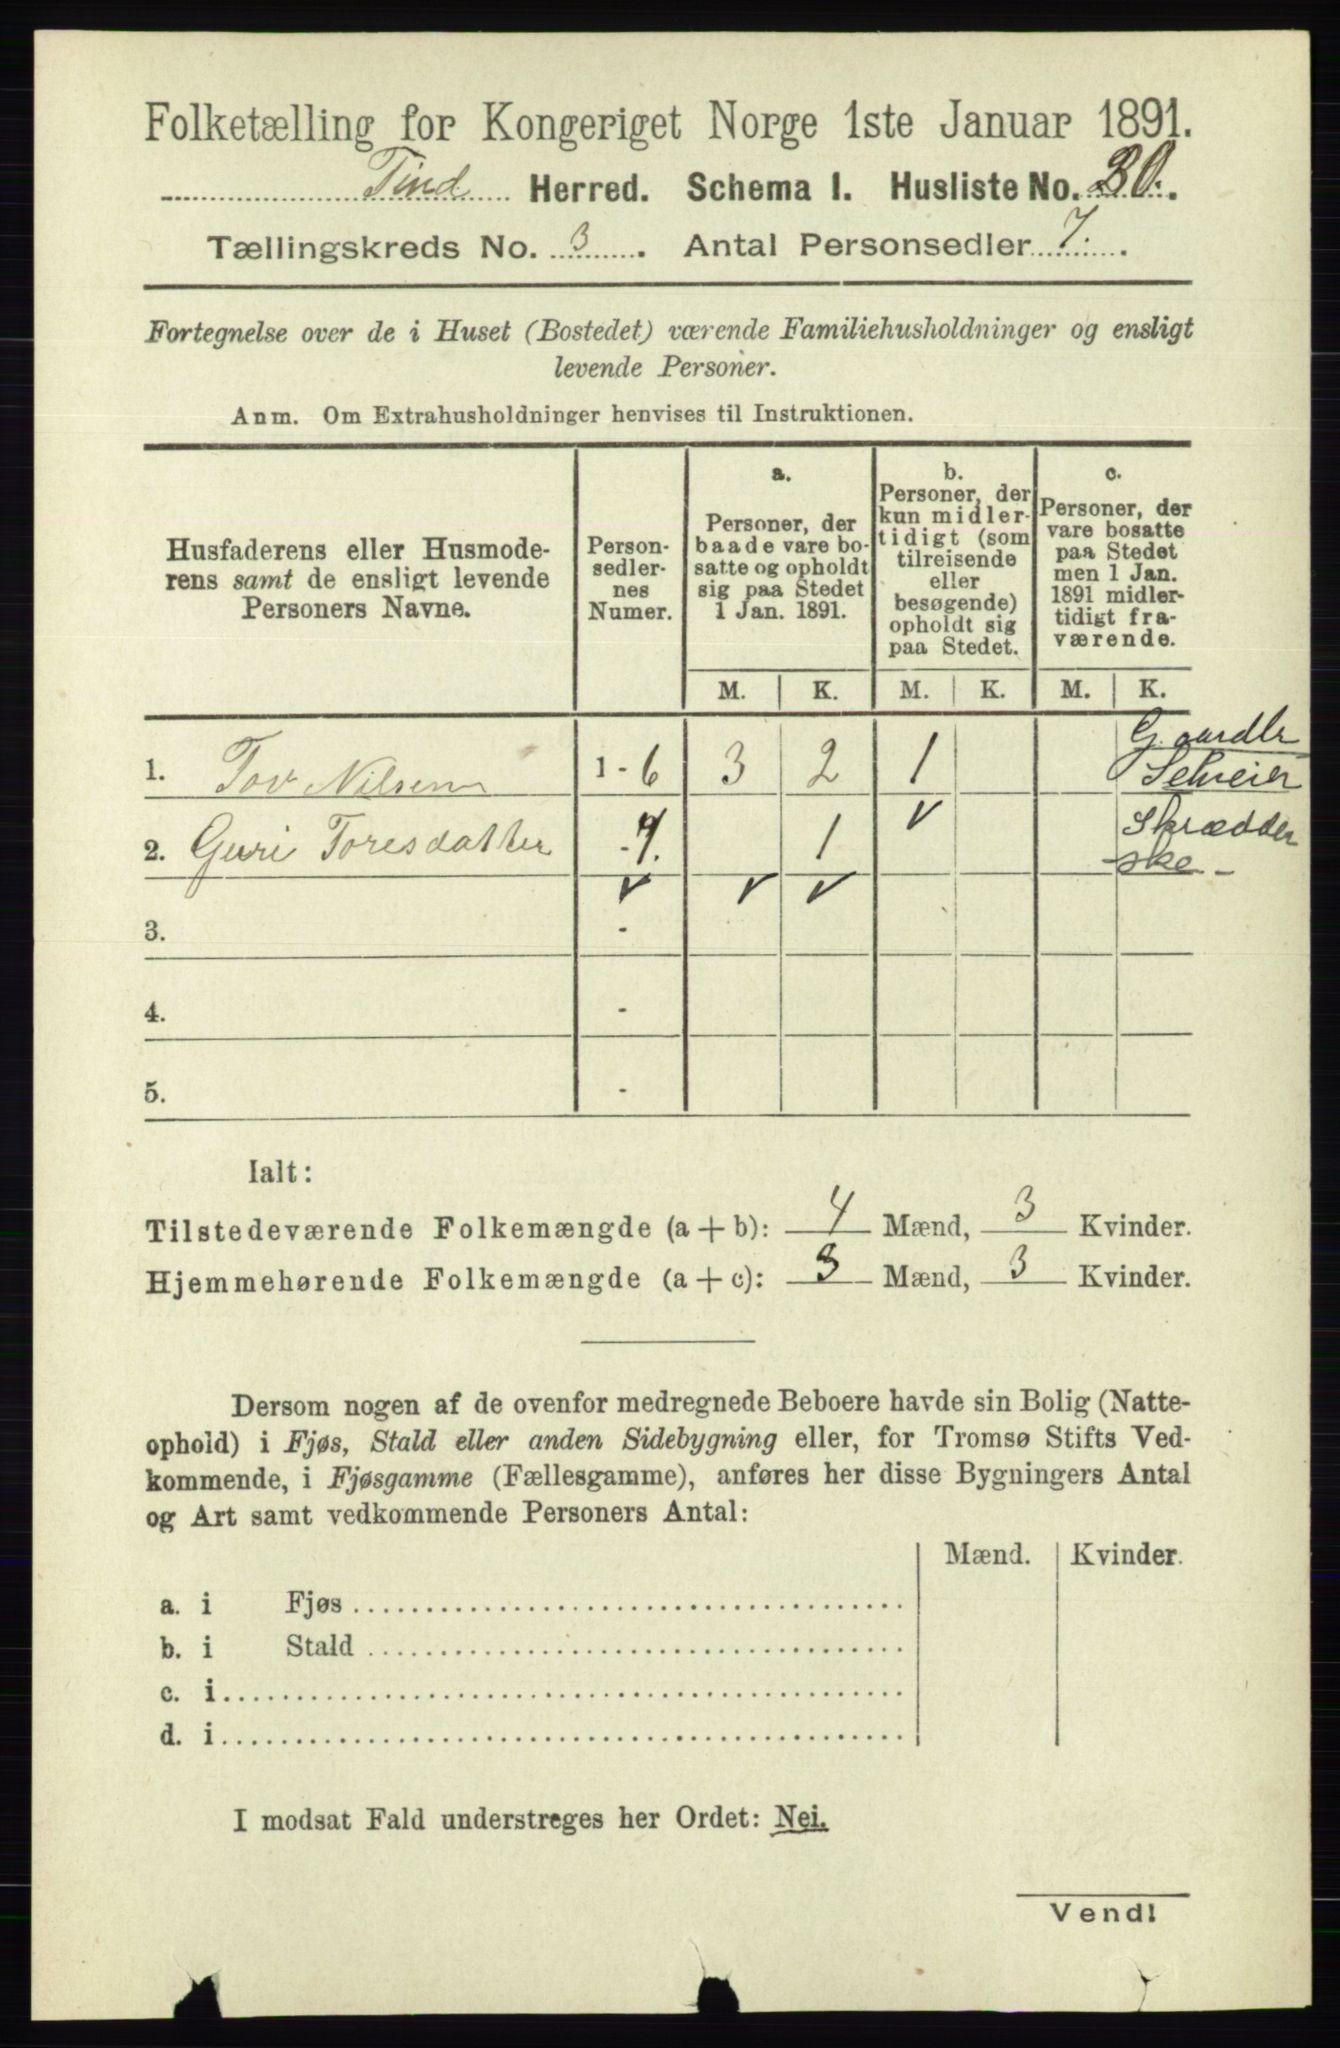 Folketælling for Kongeriget Norge 1ste Januar 1891.
Tind Herred. Schema I. Husliste No. 20.
Tællingskreds No. 3. Antal Personsedler 7.
Fortegnelse over de i Huset (Bostedet) værende Familiehusholdninger og ensligt
levende Personer.
Anm. Om Extrahusholdninger henvises til Instruktionen.
Husfaderens eller Husmode-
rens samt de ensligt levende
Personers Navne.
Person-
sedler-
nes
Numer.
a.
Personer, der
baade vare bo-
satte og opholdt
sig paa Stedet
1 Jan. 1891.
b.
Personer, der
kun midler-
tidigt (som
tilreisende
eller
besøgende)
opholdt sig
paa Stedet.
c.
Personer, der
vare bosatte
paa Stedet
men 1 Jan.
1891 midler-
tidigt fra-
værende.
M. K. M. K. M. K.
1. Tov Nilsen 1 - 6 3 2 1 Gaardbr Selveier
2. Guri Toresdatter - 7. 1 Skrædder
ske -
3. -
4. -
5. -
Ialt:
Tilstedeværende Folkemængde (a + b): 4 Mænd, 3 Kvinder.
Hjemmehørende Folkemængde (a + c): 3 Mænd, 3 Kvinder.
Dersom nogen af de ovenfor medregnede Beboere havde sin Bolig (Natte-
ophold) i Fjøs, Stald eller anden Sidebygning eller, for Tromsø Stifts Ved-
kommende, i Fjøsgamme (Fællesgamme), anføres her disse Bygningers Antal
og Art samt vedkommende Personers Antal:
Mænd. Kvinder.
a. i Fjøs
b. i Stald
c. i
d. i
I modsat Fald understreges her Ordet: Nei.
Vend!